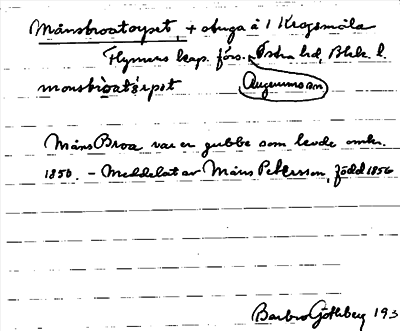 Månsbroatorpet, + stuga å 1 Krogsmåla
Flymens kap. förs. Östra hd, Blek. l.
Augerums sn
monsbroatårpet
Måns Broa var en gubbe som levde omkr.
1850. – Meddelat av Måns Pettersson, född 1856
Barbro Götheberg 193